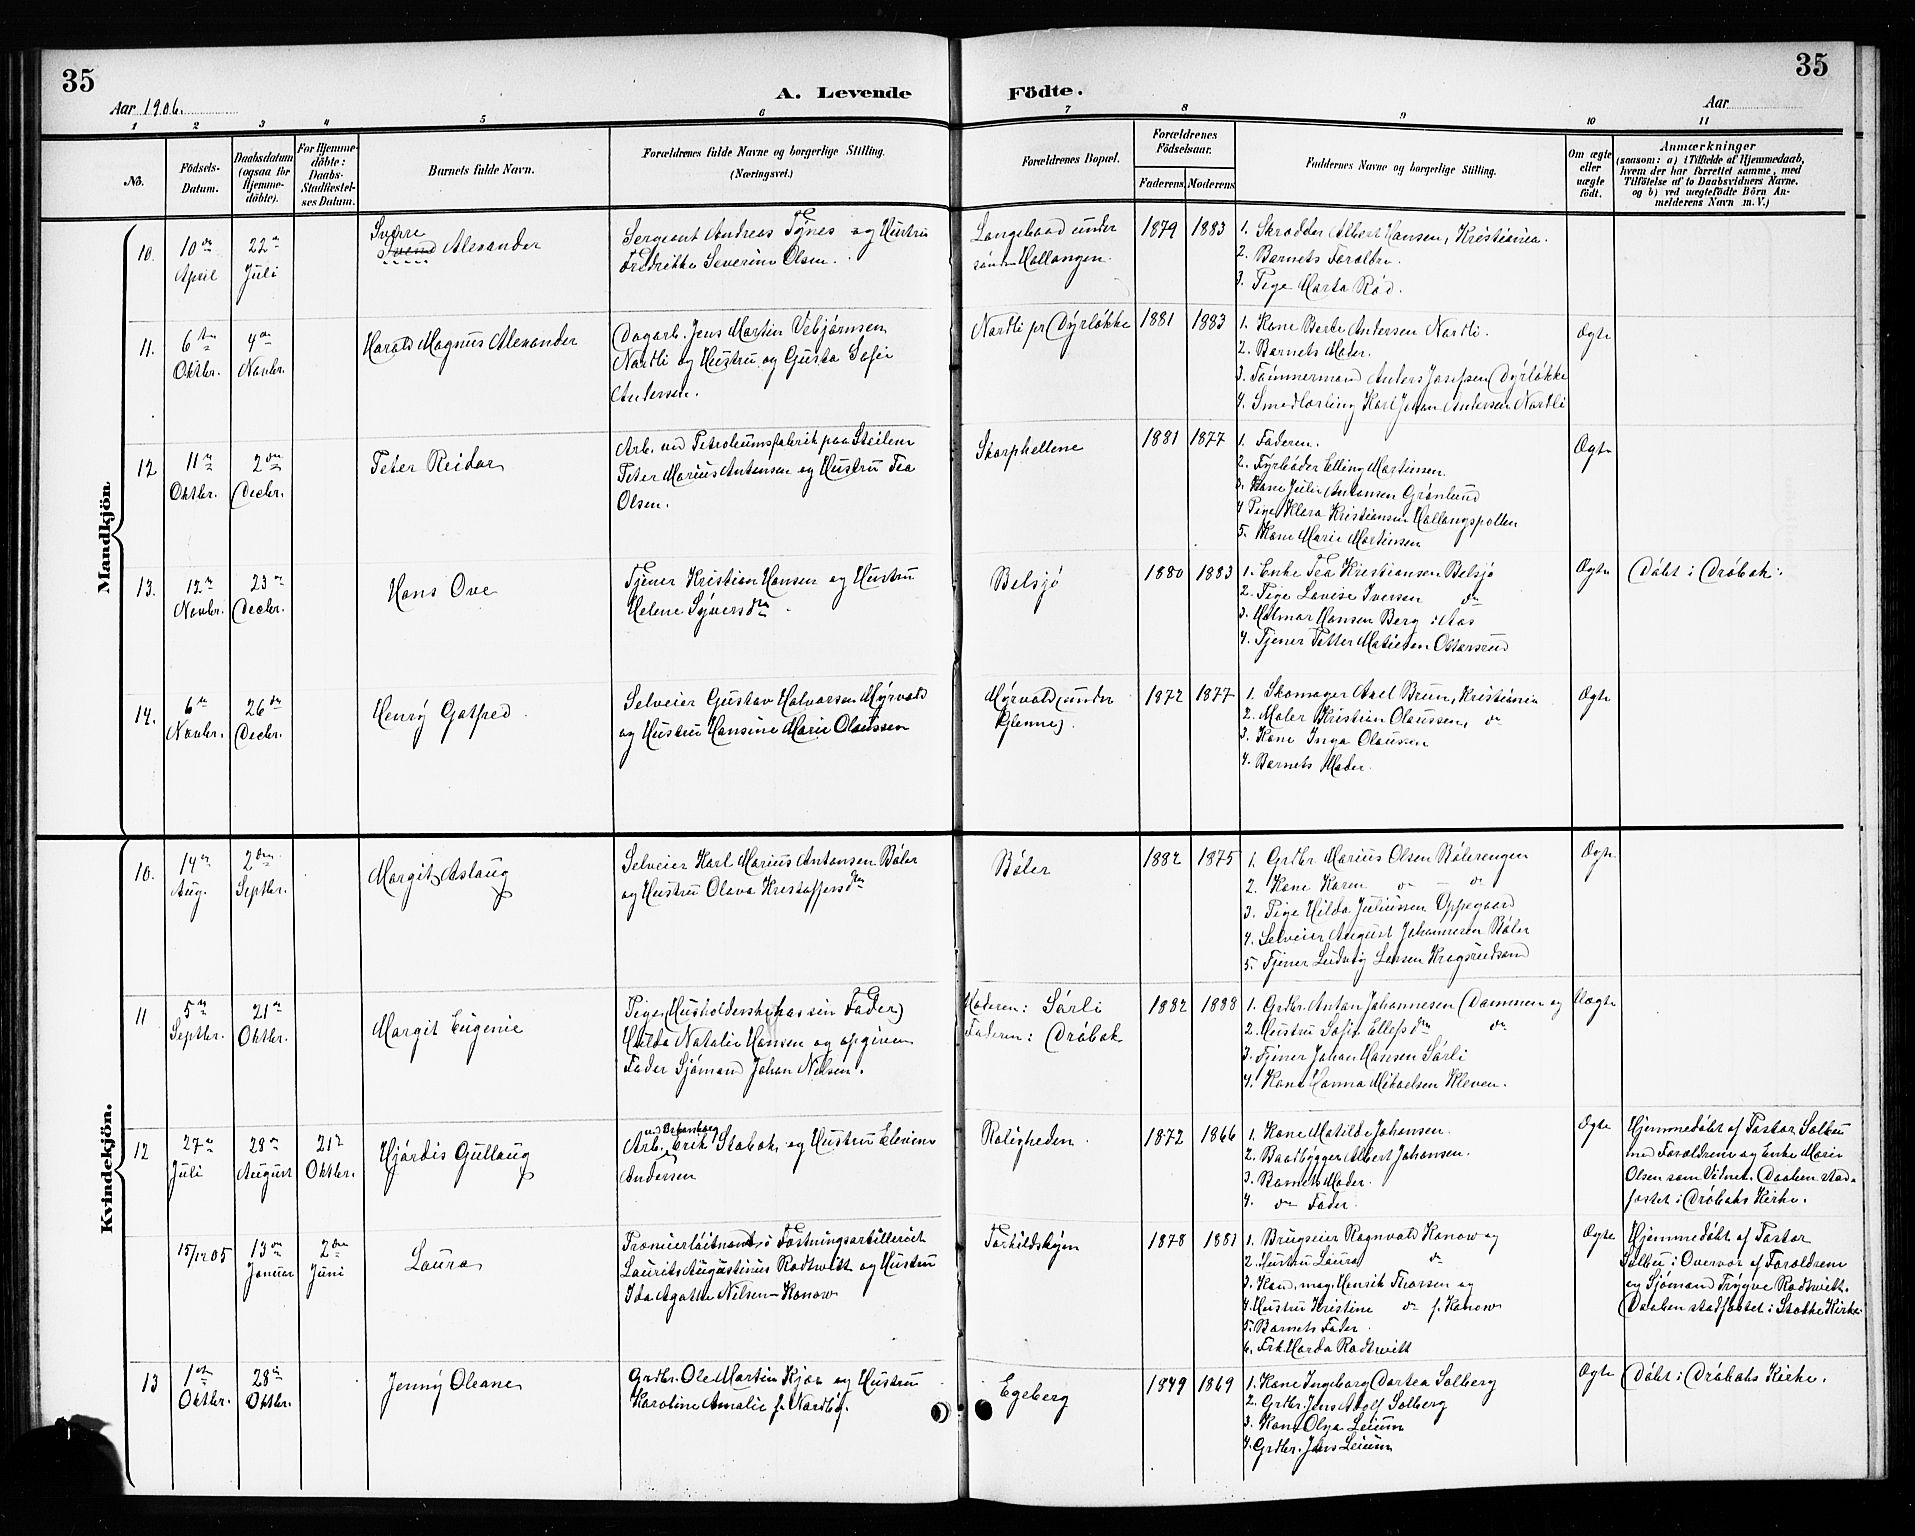 35
35
Aar 1906.
A. Levende
Födte.
Aar
1 2 3 4 5 6 7 8 9 10 11
No.
Födsels-
Datum.
Daabsdatum
(ogsaa for
Hjemme-
döbte).
For Hjemme-
döbte:
Daabs-
Stadfæstel-
ses Datum.
Barnets fulde Navn.
Forældrenes fulde Navne og borgerlige Stilling.
(Næringsvei.)
Forældrenes Bopæl.
Forældrenes
Födselsaar.
Faderens Moderens
Faddernes Navne og borgerlige Stilling.
Om ægte
eller
uægte
födt.
Anmærkninger
(saasom: a) i Tilfælde af Hjemmedaab,
hvem der har forrettet samme, med
Tilföielse af to Daabsvidners Navne.
og b) ved uægtefödte Börn An-
melderens Navn m. V.)
Mandkjön
10.
10de
April
22de
Juli
Sverre
Alexander
Sergeant Andreas Tynes og Hustru
Fredrikke Severine Olsen.
Langebaad under
søndre Hallangen.
1879 1883
1. Skrædder Albert Hansen, Kristiania.
2. Barnets Forældre.
3. Pige Marta Rød.
11.
6te
Oktbr.
4de
Novbr.
Harald Magnus Alexander
Dagarb. Jens Martin Vebjørnsen
Nordli og Hustru og Gusta Sofie
Andersen.
Nordli pr Dyrløkke
1881 1883
1. Kone Berte Andersen Nordli.
2. Barnets Moder.
3. Tømmermand Anders Josefsen Dyrløkke
4. Smedlærling Karl Johan Andersen Nordli
Ægte
12
11te
Oktbr.
2den
Decbr.
Peter Reidar
Arb. ved Petroleumsfabrik paa Steilene
Peter Marius Antonsen og Hustru Tea
Olsen.
Skorphellene
1881 1877
1. Faderen.
2. Fyrbøder Elling Martinsen.
3. Kone Julie Antonsen Grønlund
4 Pige Klara Kristiansen Hallangspollen
5. Kone Marie Martinsen
Ægte
13.
12te
Novbr.
23de
Decbr.
Hans Ove
Tjener Kristian Hansen og Hustru
Helene Syversdtr
Belsjø
1880 1883
1. Enke Tea Kristiansen Belsjø
2. Pige Lovise Iversen do
3. Hilmar Hansen Berg i Aas
4. Tjener Petter Matiesen Ottarsrud
Ægte
Døbt i Drøbak.
14.
6te
Novbr.
26de
Decbr.
Henry Gotfred
Selveier Gustav Halvorsen Myrvold
og Hustru Hansine Marie Olaussen
Myrvold (under
Glenne).
1872 1877
1. Skomager Axel Brun, Kristiania
2. Maler Kristian Olaussen, do
3. Kone Inga Olaussen
4. Barnets Moder.
Ægte
Kvindekjön.
10.
14de
Aug.
2den
Septbr.
Margit Aslaug
Selveier Karl Marius Antonsen Bøler
og Hustru Olava Kristoffersdtr
Bøler
1882 1875
1. Grdbr. Marius Olsen Bølerengen
2. Kone Karen do - do
3. Pige Hilda Juliussen Oppegaard
4. Selveier August Johannesen Bøler
5. Tjener Ludvig Larsen
Ægte
11
5te
Septbr.
21de
Oktbr.
Margit Eugenie
Pige, (Husholderske hos sin Fader)
Hulda Natalie Hansen og opgiven
Fader Sjømand Johan Nilsen.
Moderen: Sørli
Faderen: Drøbak
1882 1888
1. Grdbr. Anton Johannesen Dammen og
2. Hustru Sofie Ellefsdtr do
3. Tjener Johan Hansen Sørli
4. Kone Hanna Mikaelsen Kleven.
Uægte
12
27de
Juli
28de
August
21de
Oktbr.
Hjørdis Gullaug
Arb. Erik Stabæk og Hustru Elevine
Andersen
Roligheden
1872 1866
1. Kone Matilde Johansen.
2. Baadbygger Albert Johansen.
3. Barnets Moder.
4. do Fader.
Ægte
Hjemmedøbt af Pastor Solbeu
med Forældrene og Enke Marie
Olsen som Vidner. Daaben stad-
fæstet i Drøbaks Kirke.
15/12 05
13de
Januar
2den
Juni
Laura
Premierløitnant i Fæstningsartilleriet
Laurits Augustinus Rødtwitt og Hustru
Ida Agathe Nilsen-Konow
Torkildsbyen
1878 1881
1. Brugseier Ragnvald Konow og
2. Hustru Laura do
3. Kand. mag. Henrik Thorsen og
4. Hustru Kristine do f. Konow
5. Barnets Fader
6. Frk. Marda Rødtwitt
Ægte
Hjemmedøbt af Pastor
Solbeu i Overvær af Forældrene
og Sjømand Trygve Rødtwitt.
Daaben stadfæstet i Stokke Kirke
13
1ste
Oktbr.
28de
Oktbr.
Jenny Oleane
Grdbr. Ole Martin Kjær og Hustru
Karoline Amalie f. Nordbø.
Egeberg
1849 1869
1. Kone Ingeborg Dortea Solberg
2. Grdbr. Jens Adolf Solberg
3. Kone Olga Leium
4. Grdbr. Jens Leium
Ægte
Døbt i Drøbaks Kirke.